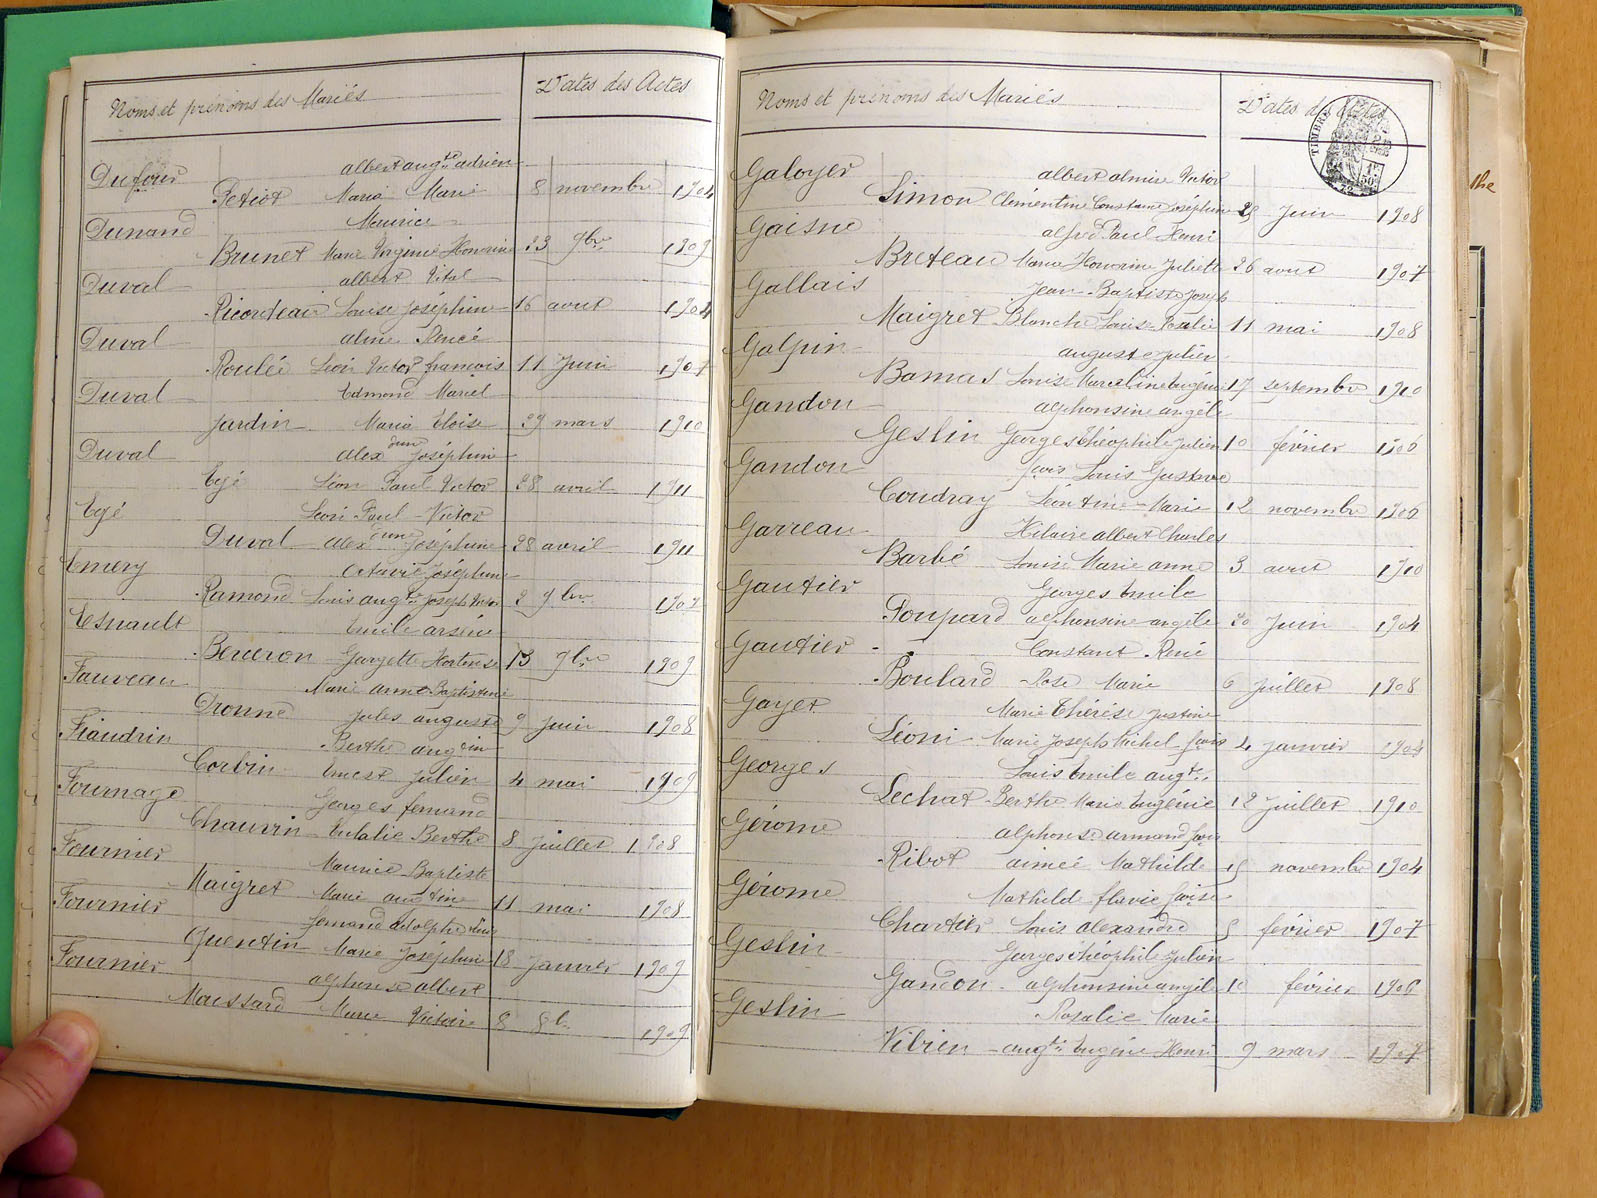 Noms et prénoms des Mariés
Dates des Actes
Dufour albert augte adrien
Petiot Maria Marie 8 novembre 1904
Dunand Maurice
Brunet Marie Virginie Honorine 23 9bre 1909
Duval albert Vital
Ricordeau Louise Joséphine 16 aout 1904
Duval aline Renée
Roulée Léon Victor françois 11 Juin 1907
Duval Edmond Marcel
Jardin Maria Eloise 29 mars 1910
Duval alexdrine Joséphine
Egé Léon Paul Victor 28 avril 1911
Egé Léon Paul Victor
Duval alexdrine Joséphine 28 avril 1911
Emery Octavie Joséphine
Ramond Louis augte Joseph Victor 2 9bre 1907
Esnault Emile arsène
Berceron Georgette Hortense 13 9bre 1909
Fauveau Marie anne Baptistine
Dronne Jules auguste 9 Juin 1908
Fiaudrin Berthe augtin
Corbin Ernest Julien 4 mai 1909
Foumage Georges fernand
Chauvin Eulalie Berthe 8 Juillet 1908
Fournier Maurice Baptiste
Maigret Marie 11 mai 1908
Fournier fernand adolphe
Quentin Marie Joséphine 18 Janvier 1909
Fournier alphonse albert
Maussard Marie Victoire 8 1909
Noms et prénoms des Mariés
Dates des Actes
TIMBRE
Galoyer albert almire Victor
Simon Clémentine Constance Joséphine 29 Juin 1908
Gaisne alfred Paul Henri
Breteau Maria Honorine Juliette 26 aout 1907
Gallais Jean-Baptiste Joseph
Maigret Blanche Louise Rosalie 11 mai 1908
Galpin auguste Julien
Bamas Louise Marceline Eugénie 17 septembre 1910
Gandon alphonsine angèle
Geslin Georges théophile Julien 10 février 1906
Gandon fçois Louis Gustave
Coudray Léontine Marie 12 novembre 1906
Garreau Hilaire albert Charles
Barbé Louise Marie anne 3 aout 1910
Gautier Georges Emile
Poupard alphonsine angèle 20 Juin 1904
Gautier Constant René
Boulard Rose Marie 6 Juillet 1908
Gayet Marie Thérèse Justine
Léoni Marie Joseph Michel fçois 4 Janvier 1904
Georges Louis Emile augte
Lechat Berthe Marie Eugénie 12 Juillet 1910
Gérome alphonse armand fçois
Ribot aimée Mathilde 15 novembre 1904
Gérome Mathilde flavie fçoise
Chartier Louis alexandre 5 février 1907
Geslin Georges théophile Julien
Gandon alphonsine angèle 10 février 1906
Geslin Rosalie Marie
Vibien augte Eugène Henri 9 mars 1907